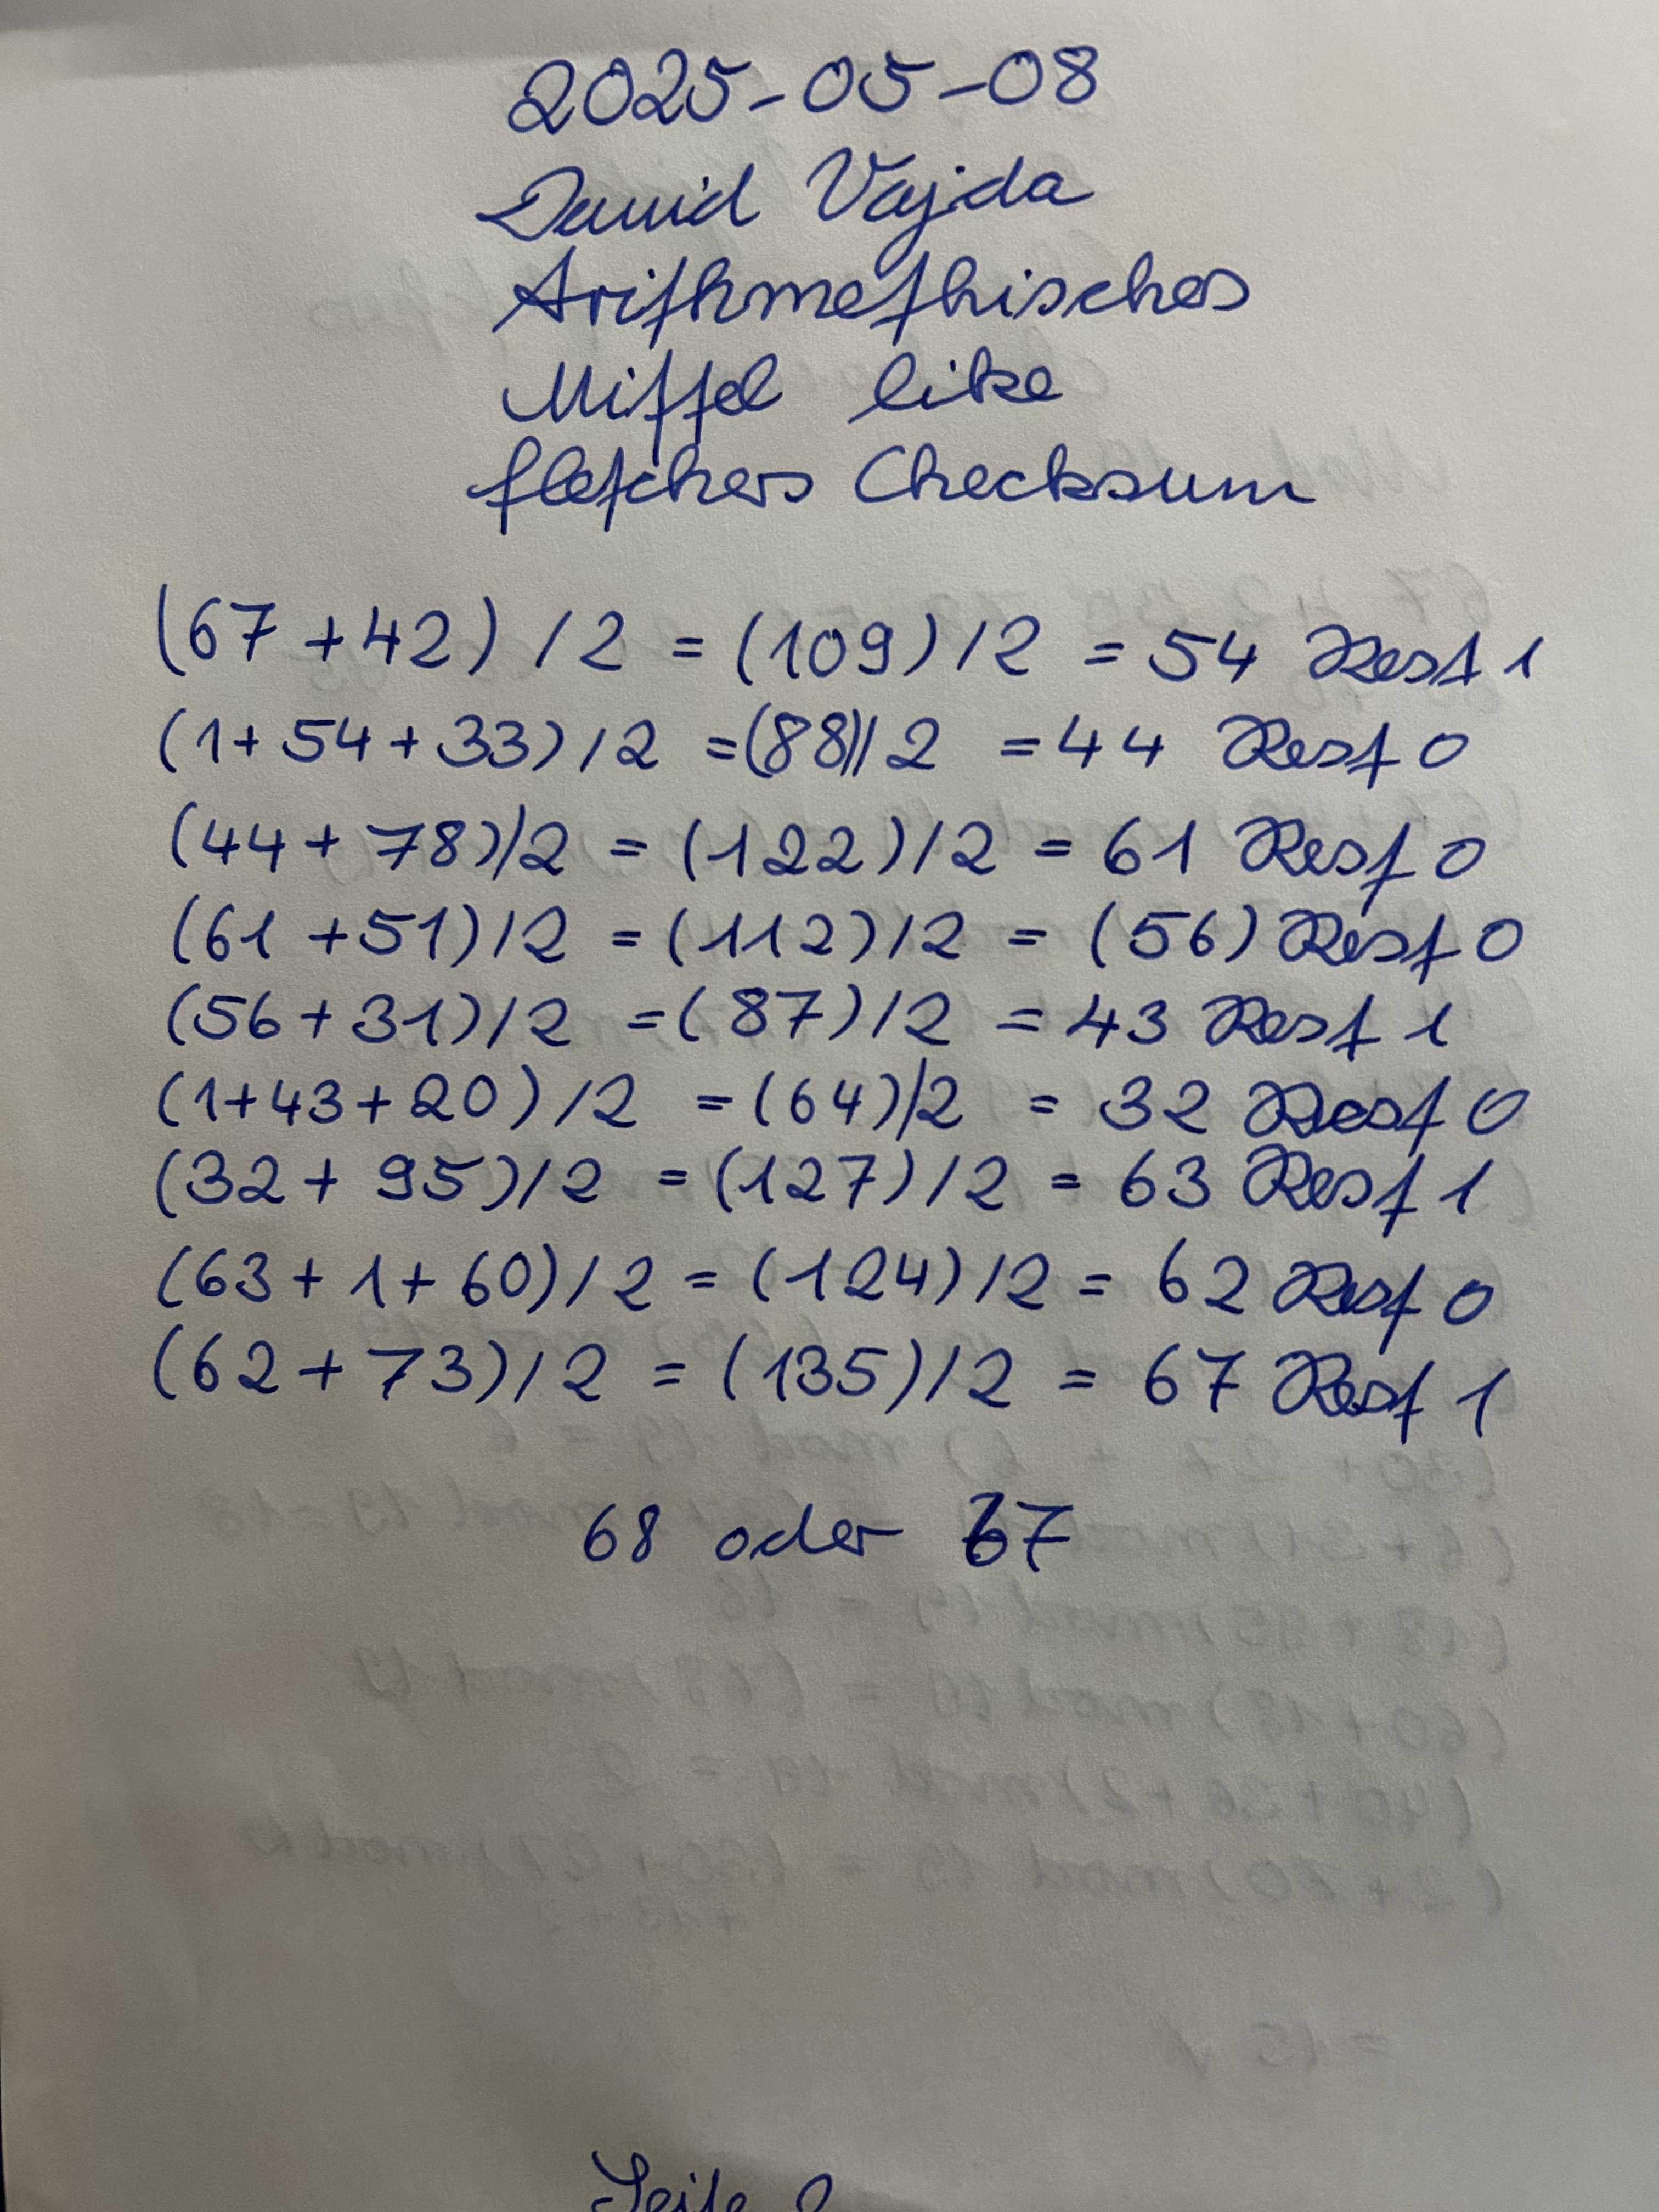 2025-05-08
David Vajda
Arithmethisches
Mittel like
fletchers Checksum
(67+42) / 2 = (109)/2 = 54 Rest 1
(1+54+33)/2 =(88)/2 = 44 Rest 0
(44+78)/2 = (122)/2 = 61 Rest 0
(61+51)/2 = (112)/2 = (56) Rest 0
(56+31)/2 =(87)/2 = 43 Rest 1
(1+43+20)/2 =(64)/2 = 32 Rest 0
(32+95)/2 = (127)/2 = 63 Rest 1
(63+1+60)/2 = (124)/2 = 62 Rest 0
(62+73)/2 = (135)/2 = 67 Rest 1
68 oder 67
Seite